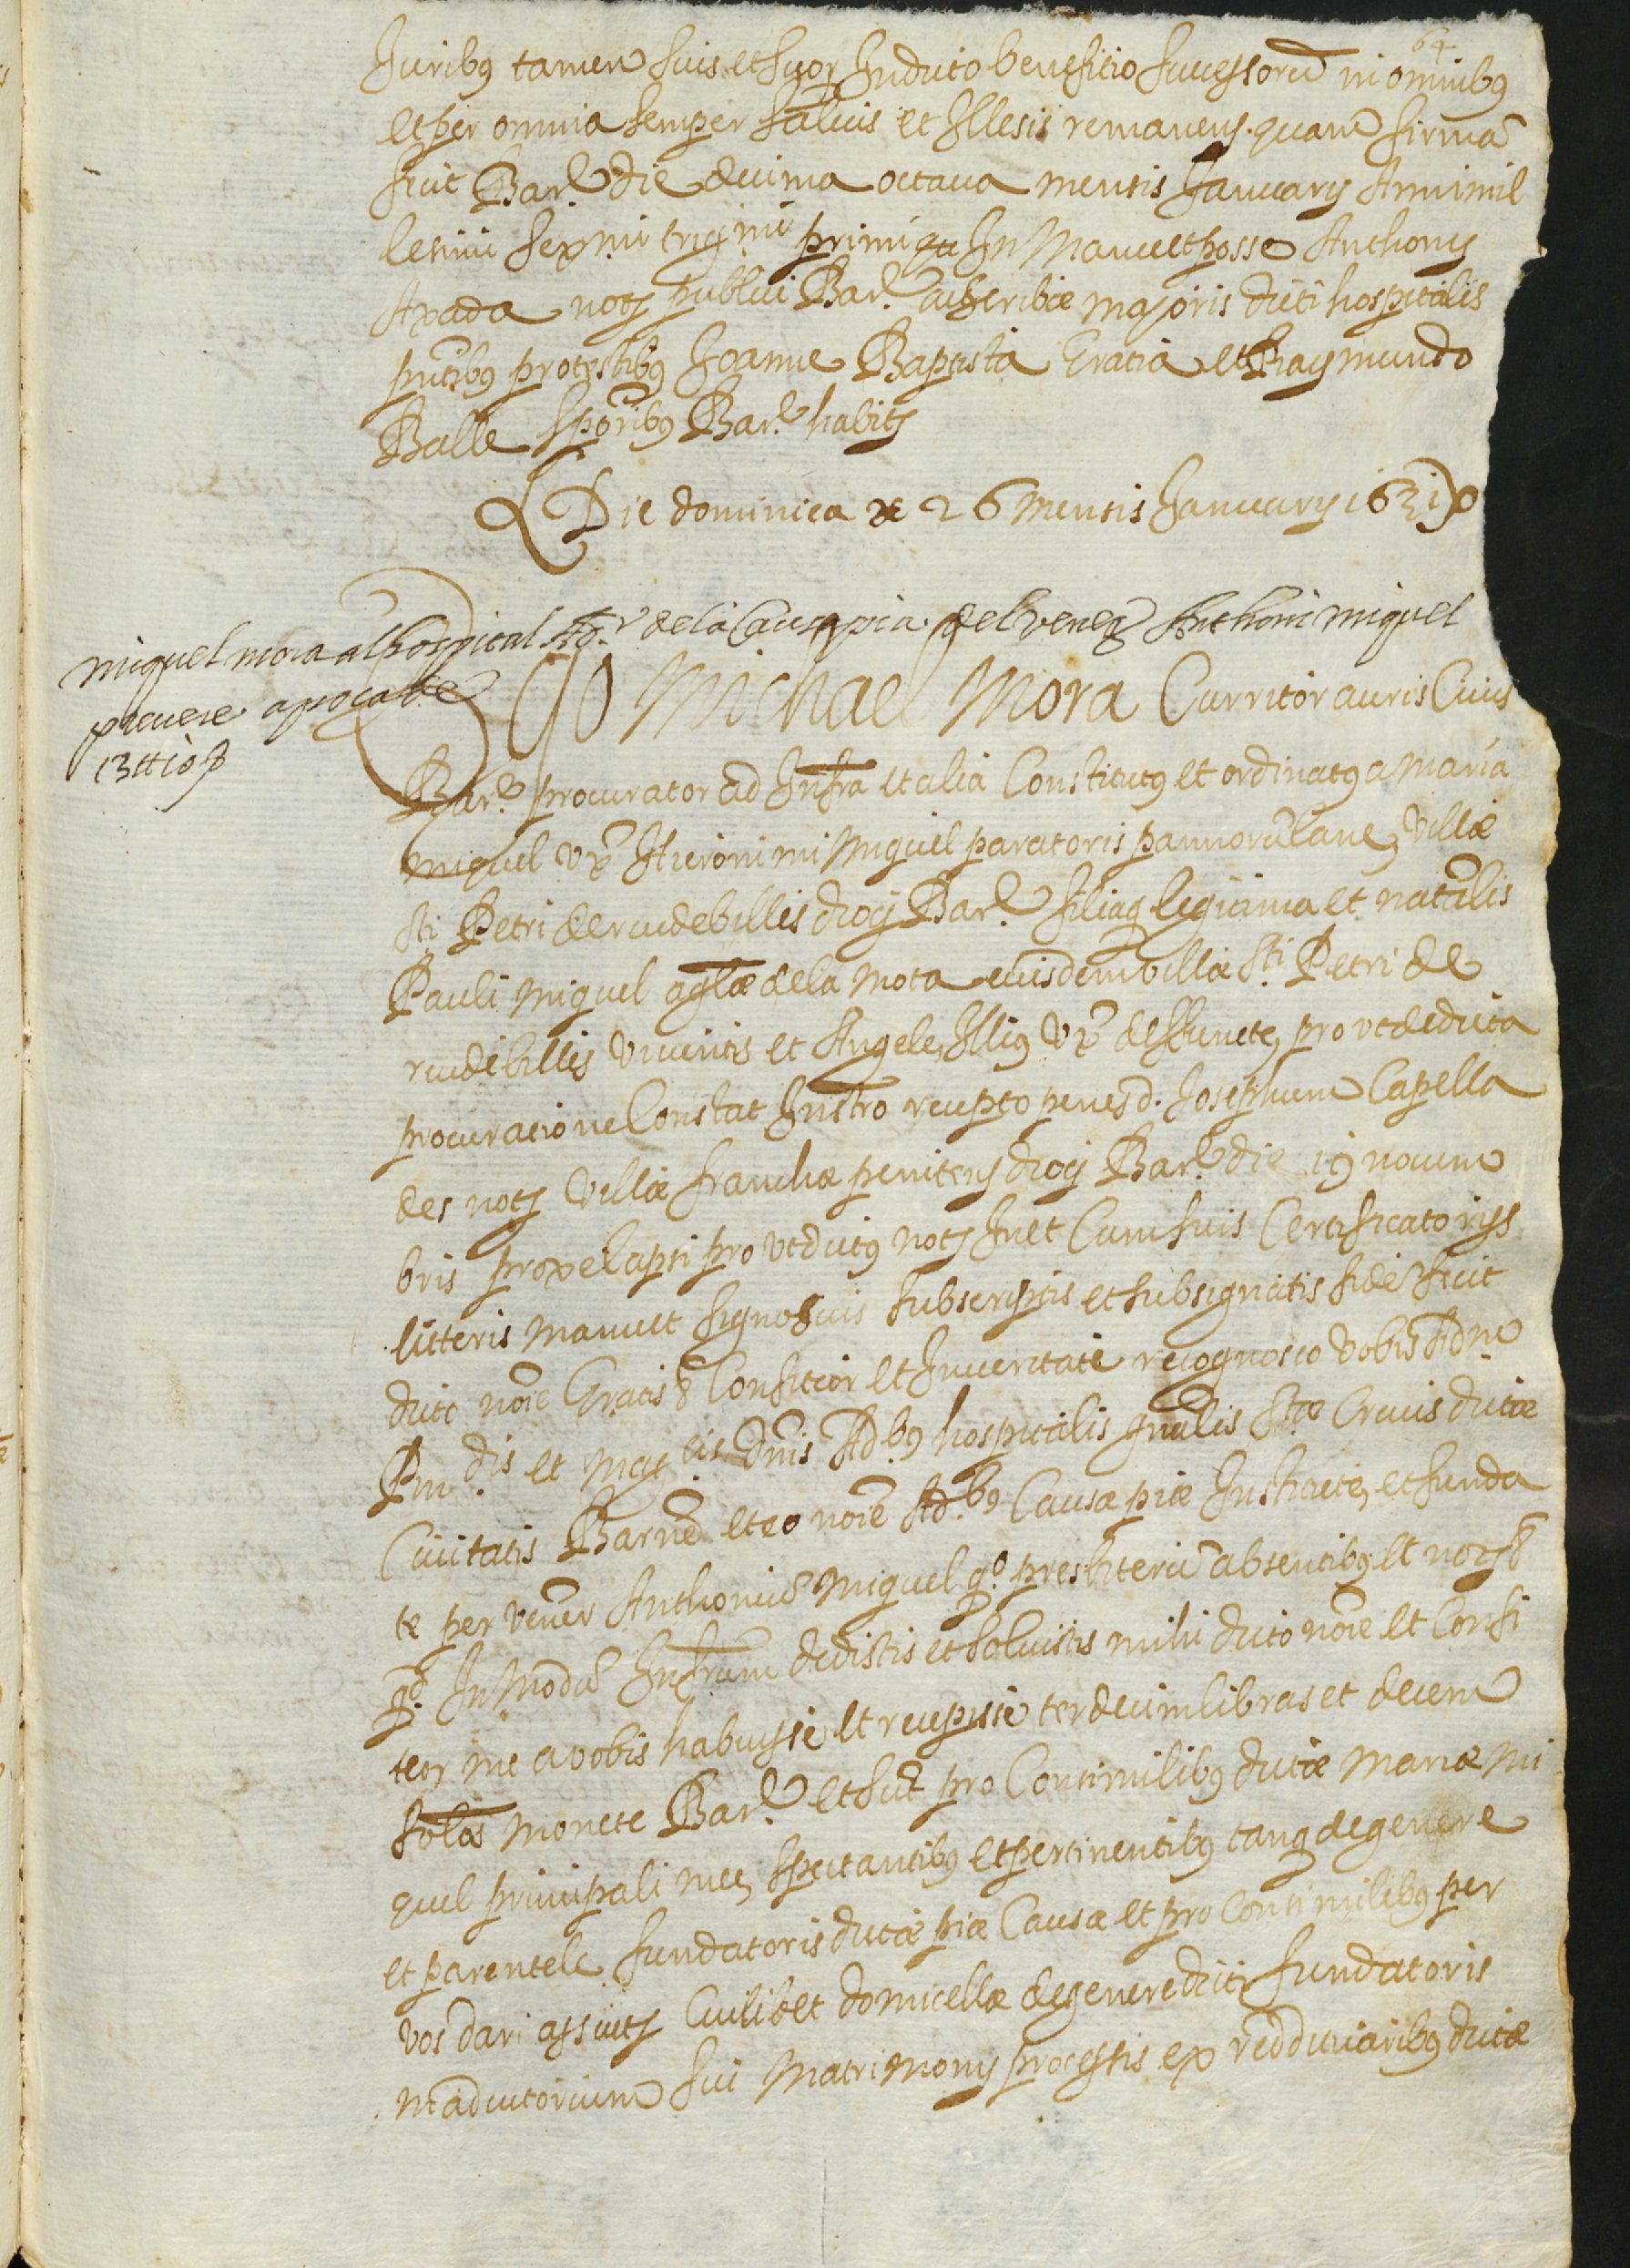 64
Juribus tamen suis et suor Inducto beneficio successorũ in omnibus
et per omnia semper salvis et Illesis remanens. quam firmã
fecit Barᵉ die decima octava mensis January Anni mil
lesimi sexmi trigmi primi In Manu et posse Anthony
Axada notj publici Barᵉ ac scribæ majoris dicti hospitalis
pntibus pro testibus Joanne Baptista Gratia et Raymundo
Balle sporibus Barᵉ habitj
Die dominica 26 mensis January 1631
miquel mora al hospital Ad.ʳ de la Causa pia del veneʳ Anthoni miquel
prevere apoca de
13 ℔ 10 ß
Ego Michael Mora Curritor auris Civis
Barᵉ procurator ad Infra et alia Constitutus et ordinatus a Maria
miquel vx̃ Hieronimi Miquel paratoris pannorũ lane, villæ
Sti Petri de rudebillis diocj Barᵉ filiaq legitima et naturalis
Pauli Miquel aglæ de la Mota eiusdem villæ Sti Petri de
rudebillis viventis et Angele, Illius vx̃ deffuncte, pro vt de dicta
procuracione Constat Instro recepto penes d. Josephum Capella
des notj Villæ franchæ penitensj diocj Barᵉ die 19 novem
bris proxe lapsi pro vt dictus notj In et Cum suis Certificatorijs
litteris manu et signo suis subscriptis et subsignatis fidẽ fecit
dicto noie Gratis & Confiteor et In veritate recognosco vobis Adm
Rndis et Magcis dnis Adbus hospitalis gnalis Stæ Crucis dictæ
Civitatis Barnẽ et eo noie Adbus Causæ piæ Instructe, et funda
te per vener Anthoniũ Miquel q° presbiterũ absentibus et notj &
qd In modũ Infrum dedistis et solvistis mihi dicto noie et Confi
teor me a vobis habuysse et recepisse terdecim libras et decem
solos monete Barᵉ et sũt pro Consimilibus dictæ Mariæ Mi
quel principali mee, spectantibus et pertinentibus tanq de genere
et parentele fundatoris dictæ piæ Causæ et pro Consimilibus per
vos dari assuetj Cuilibet domicellæ de genere dicti fundatoris
In adiutorium sui Matrimony procestis ex reddituaribus dictæ